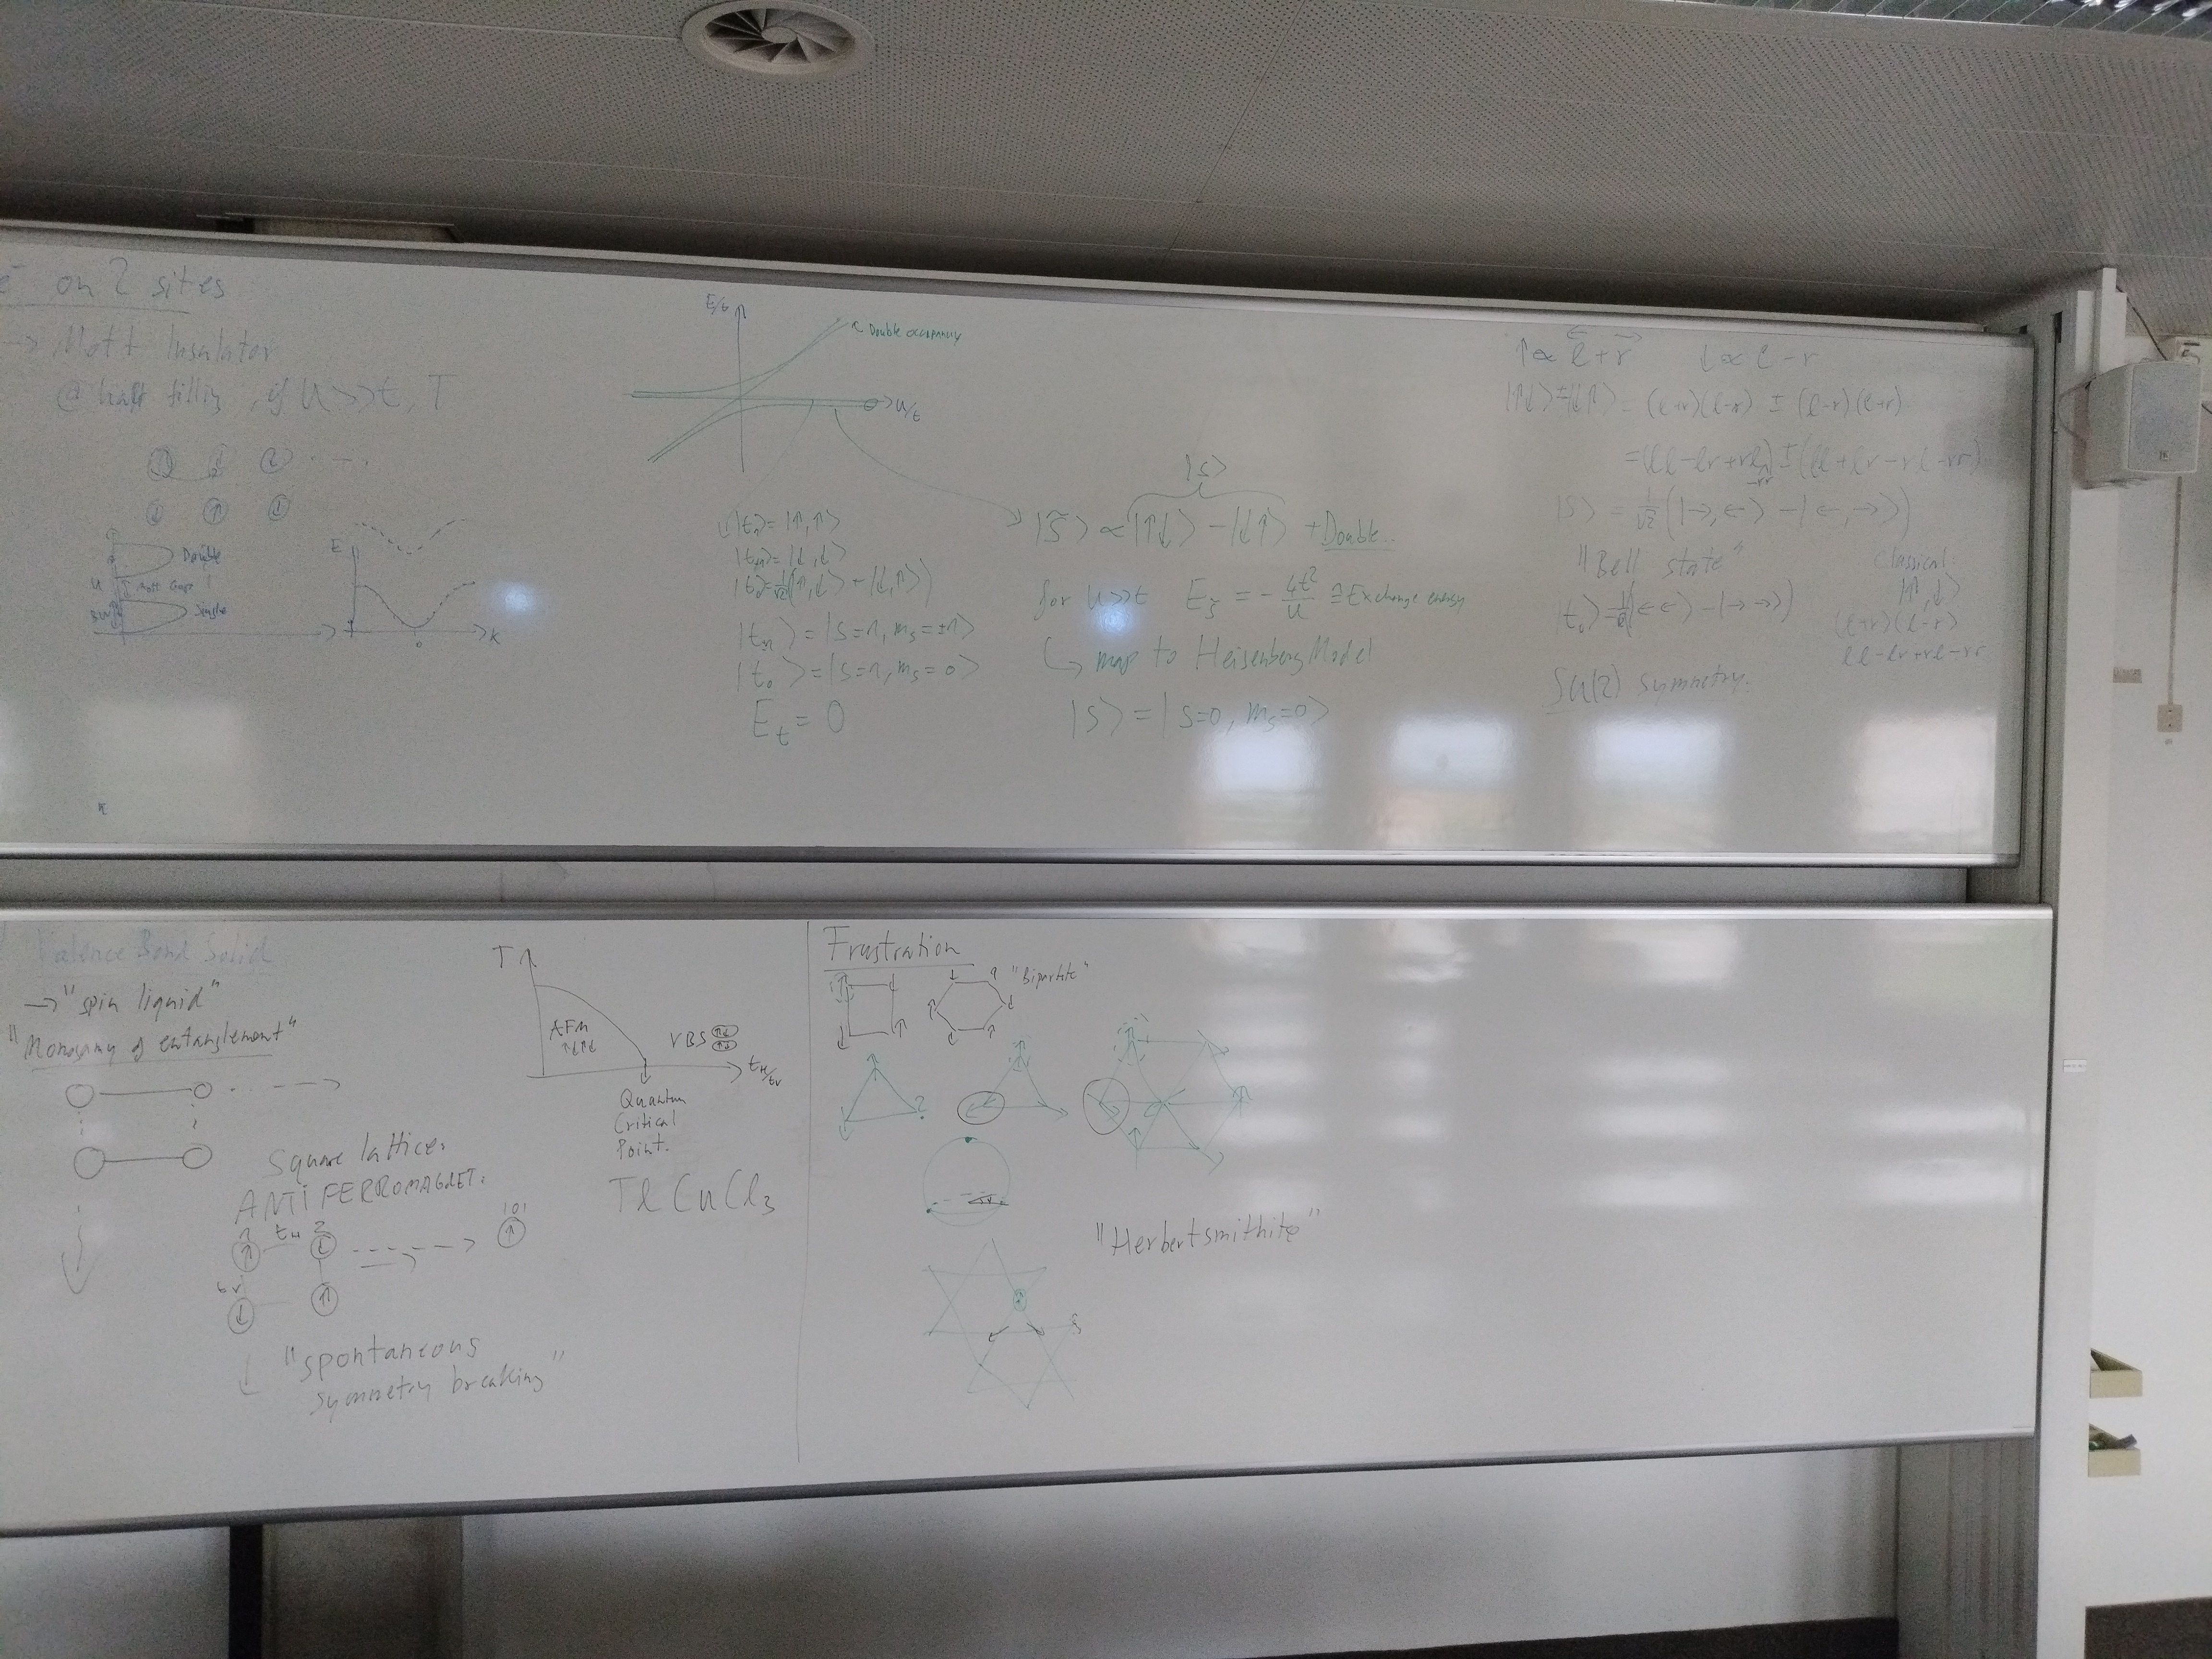 e⁻ on 2 sites
→ Mott Insulator
@ half filling, if U>>t, T
Double
U
Mott Gap
Single
E
K
E/t
Double occupancy
U/t
|t₁⟩=|↑,↑⟩
|t₋₁⟩=|↓,↓⟩
|t₀⟩=1/√2(|↑,↓⟩+|↓,↑⟩)
|t±1⟩=|S=1, mₛ=±1⟩
|t₀⟩=|S=1, mₛ=0⟩
Eₜ=0
|S⟩
|S̃⟩ ∝ |↑↓⟩-|↓↑⟩ + Double..
for U>>t E_S̃ = -4t²/U ≙ Exchange energy
↳ map to Heisenberg Model
|S⟩=|S=0, mₛ=0⟩
↑∝ l+r ↓∝ l-r
|↑↓⟩±|↓↑⟩ = (l+r)(l-r) ± (l-r)(l+r)
=(ll-lr+rl-rr)±(ll+lr-rl-rr)
|S⟩ = 1/√2(|→,←⟩-|←,→⟩)
"Bell state"
|t₀⟩=1/√2(|←←⟩-|→→⟩)
SU(2) symmetry.
Classical
|↑,↓⟩
(l+r)(l-r)
ll-lr+rl-rr
Valence Bond Solid
→"spin liquid"
"Monogamy of entanglement"
Square lattice.
ANTIFERROMAGNET.
1 t_H 2
101
t_V
"spontaneous
symmetry breaking"
T
AFM
↑↓↑↓
VBS
t_H/t_V
Quantum
Critical
Point.
TlCuCl₃
Frustration
"Bipartite"
?
"Herbertsmithite"